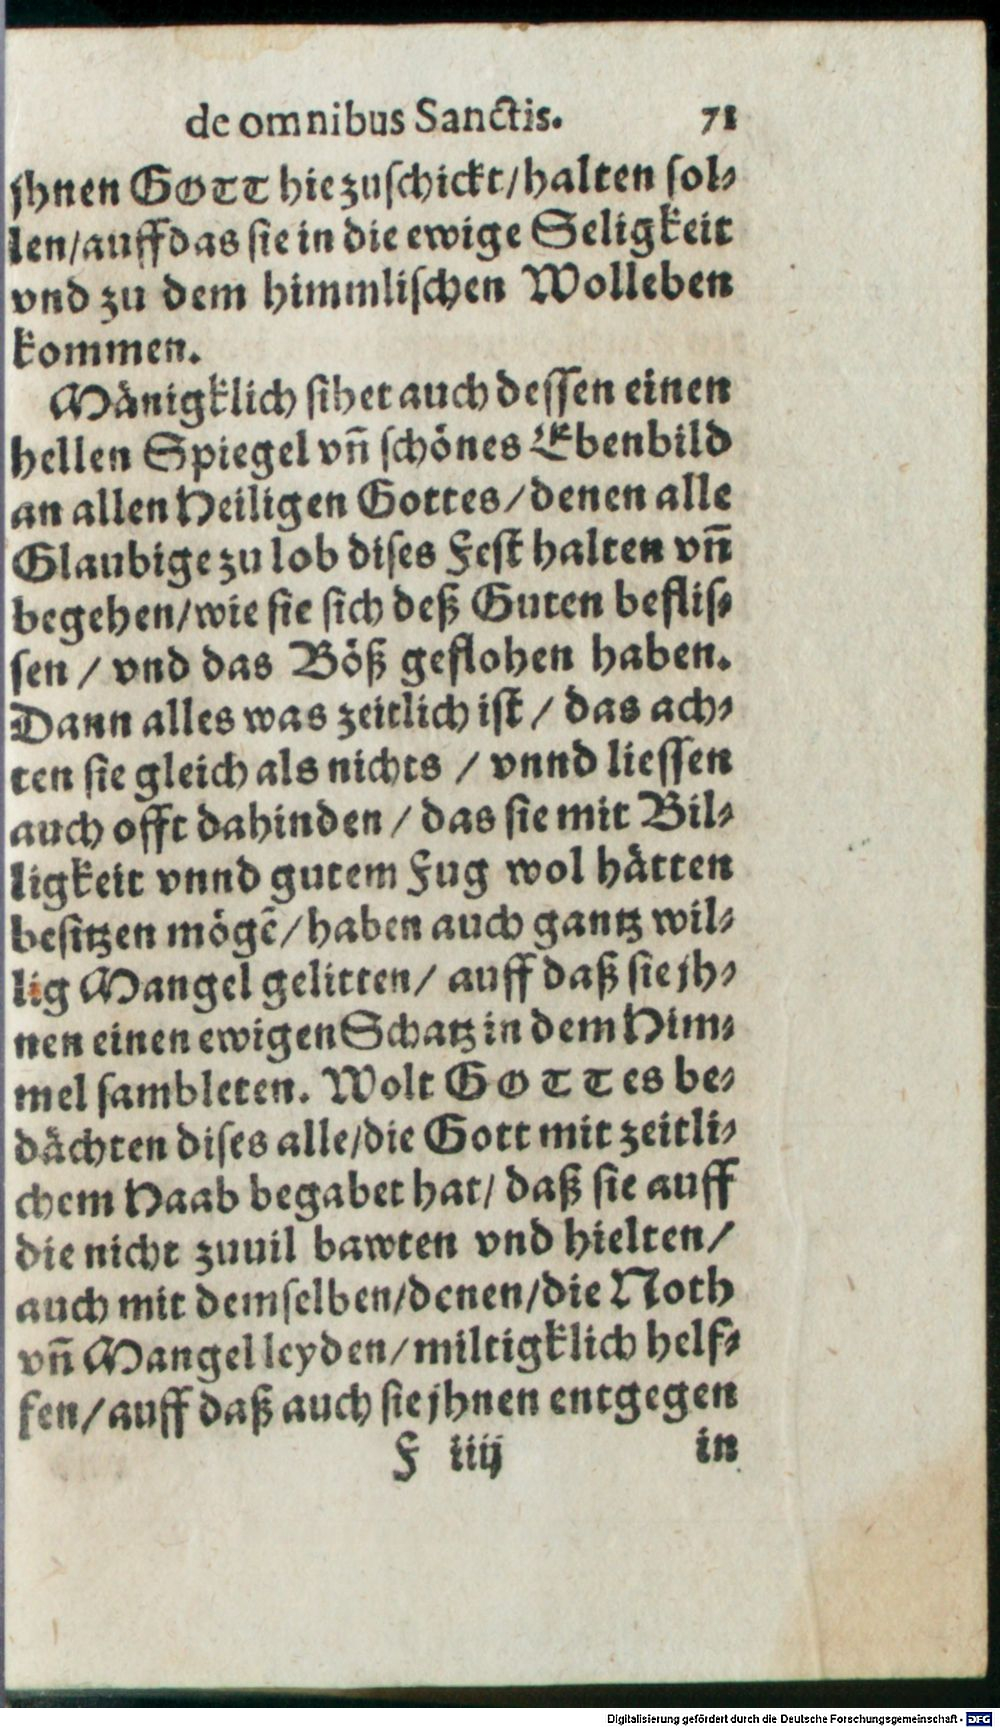 de omnibus Sanctis. 71
jhnen GOTT hie zuschickt/halten sol⸗
len/auff das sie in die ewige Seligkeit
vnd zu dem himmlischen Wolleben
kommen.
Mänigklich sihet auch dessen einen
hellen Spiegel vñ schönes Ebenbild
an allen Heiligen Gottes/denen alle
Glaubige zu lob dises Fest halten vñ
begehen/wie sie sich deß Guten beflis⸗
sen / vnd das Böß geflohen haben.
Dann alles was zeitlich ist / das ach⸗
ten sie gleich als nichts / vnnd liessen
auch offt dahinden / das sie mit Bil⸗
ligkeit vnnd gutem Fug wol hätten
besitzen mögẽ/haben auch gantz wil⸗
lig Mangel gelitten/ auff daß sie jh⸗
nen einen ewigen Schatz in dem Him⸗
mel sambleten. Wolt GOTT es be⸗
dächten dises alle/die Gott mit zeitli⸗
chem Haab begabet hat/ daß sie auff
die nicht zuuil bawten vnd hielten/
auch mit demselben/denen/die Noth
vñ Mangel leyden/miltigklich helf⸗
fen/auff daß auch sie jhnen entgegen
F iiij in
Digitalisierung gefördert durch die Deutsche Forschungsgemeinschaft - DFG